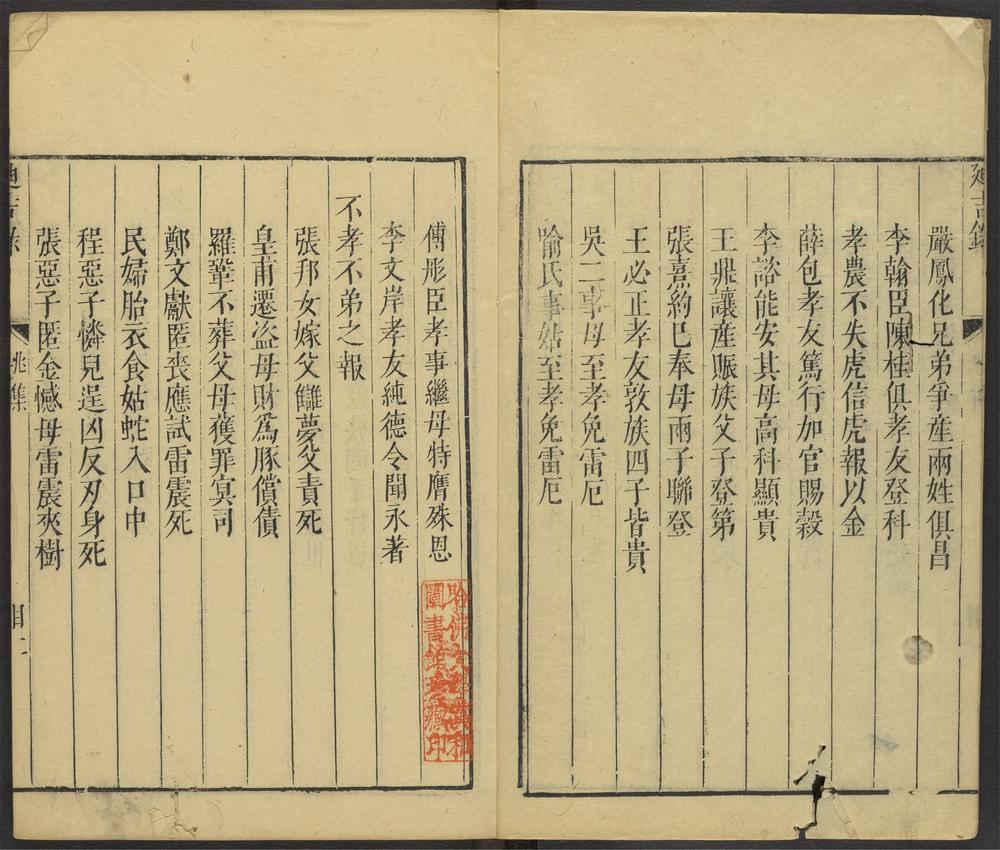 廸吉錄
嚴鳳化兄弟爭產兩姓俱昌
李翰臣陳桂俱孝友登科
孝農不失虎信虎報以金
薛包孝友篤行加官賜穀
李諮能安其母高科顯貴
王鼎讓産賑族父子登第
張熹約已奉母兩子聯登
王必正孝友敦族四子皆貴
吳二事母至孝免雷厄
喻氏事姑至孝免雷厄
傅彤臣孝事繼母特膺殊恩
李文岸孝友純德令聞永著
不孝不弟之報
張邦女嫁父讎夢父責死
皇甫遷盜母財爲豚償債
羅鞏不葬父母獲罪冥司
鄭文獻匿喪應試雷震死
民婦胎衣食姑蛇入口中
程惡子憐兒逞凶反刃身死
張惡子匿金憾母雷震夾樹
廸吉錄
兆集
目二
哈佛大學漢和
圖書館珍藏印